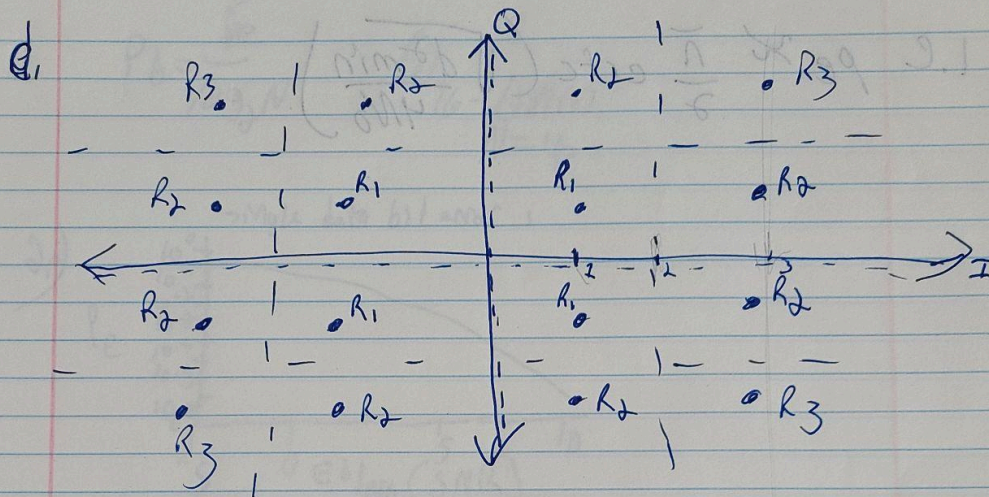 Q
d.
R3 R2 R2 R3
R2 R1 R1 R2
1 2 3 I
R2 R1 R1 R2
R3 R2 R2 R3